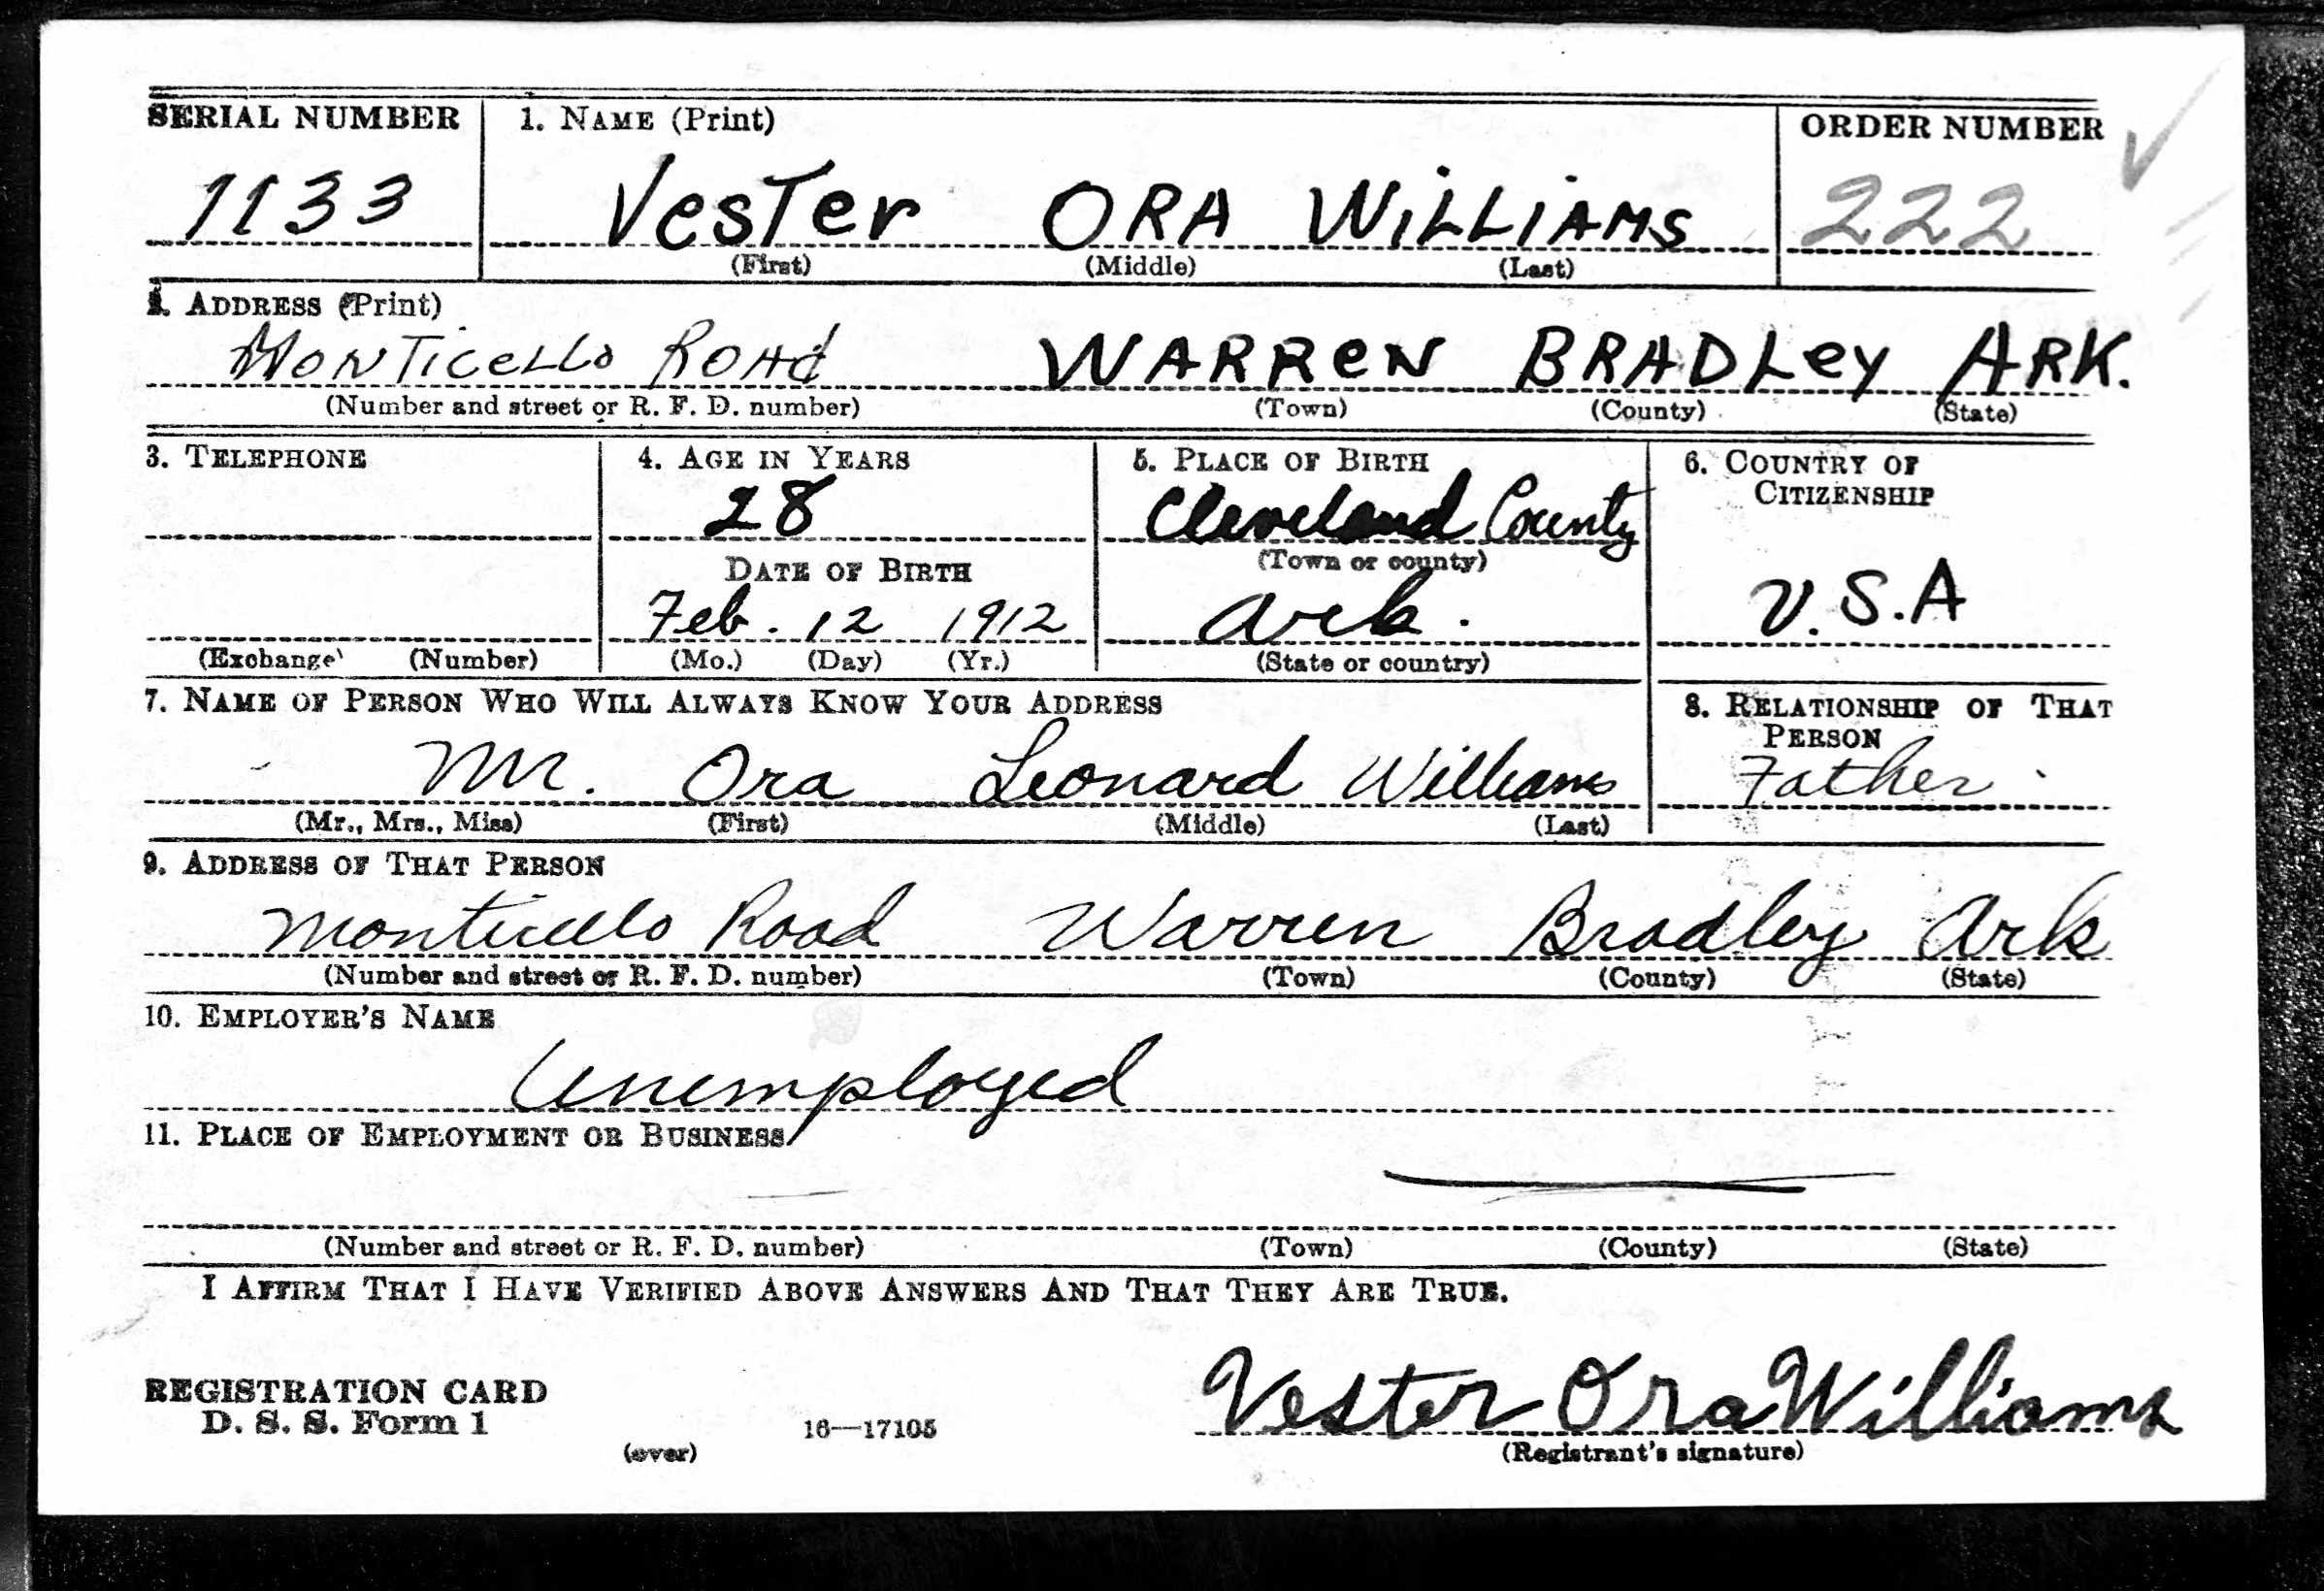 SERIAL NUMBER 1. NAME (Print) ORDER NUMBER
1133 Vester ORA WiLLiAMS 222
(First) (Middle) (Last)
2. ADDRESS (Print)
MONTiceLLo ROAd WARReN BRADLey ARK.
(Number and street or R. F. D. number) (Town) (County) (State)
3. TELEPHONE 4. AGE IN YEARS 5. PLACE OF BIRTH 6. COUNTRY OF
CITIZENSHIP
28 Cleveland County
DATE OF BIRTH (Town or county)
Feb. 12 1912 Ark. U.S.A
(Exchange) (Number) (Mo.) (Day) (Yr.) (State or country)
7. NAME OF PERSON WHO WILL ALWAYS KNOW YOUR ADDRESS 8. RELATIONSHIP OF THAT
PERSON
Mr. Ora Leonard Williams Father
(Mr., Mrs., Miss) (First) (Middle) (Last)
9. ADDRESS OF THAT PERSON
Monticello Road Warren Bradley Ark
(Number and street or R. F. D. number) (Town) (County) (State)
10. EMPLOYER'S NAME
Unemployed
11. PLACE OF EMPLOYMENT OR BUSINESS
(Number and street or R. F. D. number) (Town) (County) (State)
I AFFIRM THAT I HAVE VERIFIED ABOVE ANSWERS AND THAT THEY ARE TRUE.
REGISTRATION CARD
D. S. S. Form 1 16—17105 Vester Ora Williams
(over) (Registrant's signature)